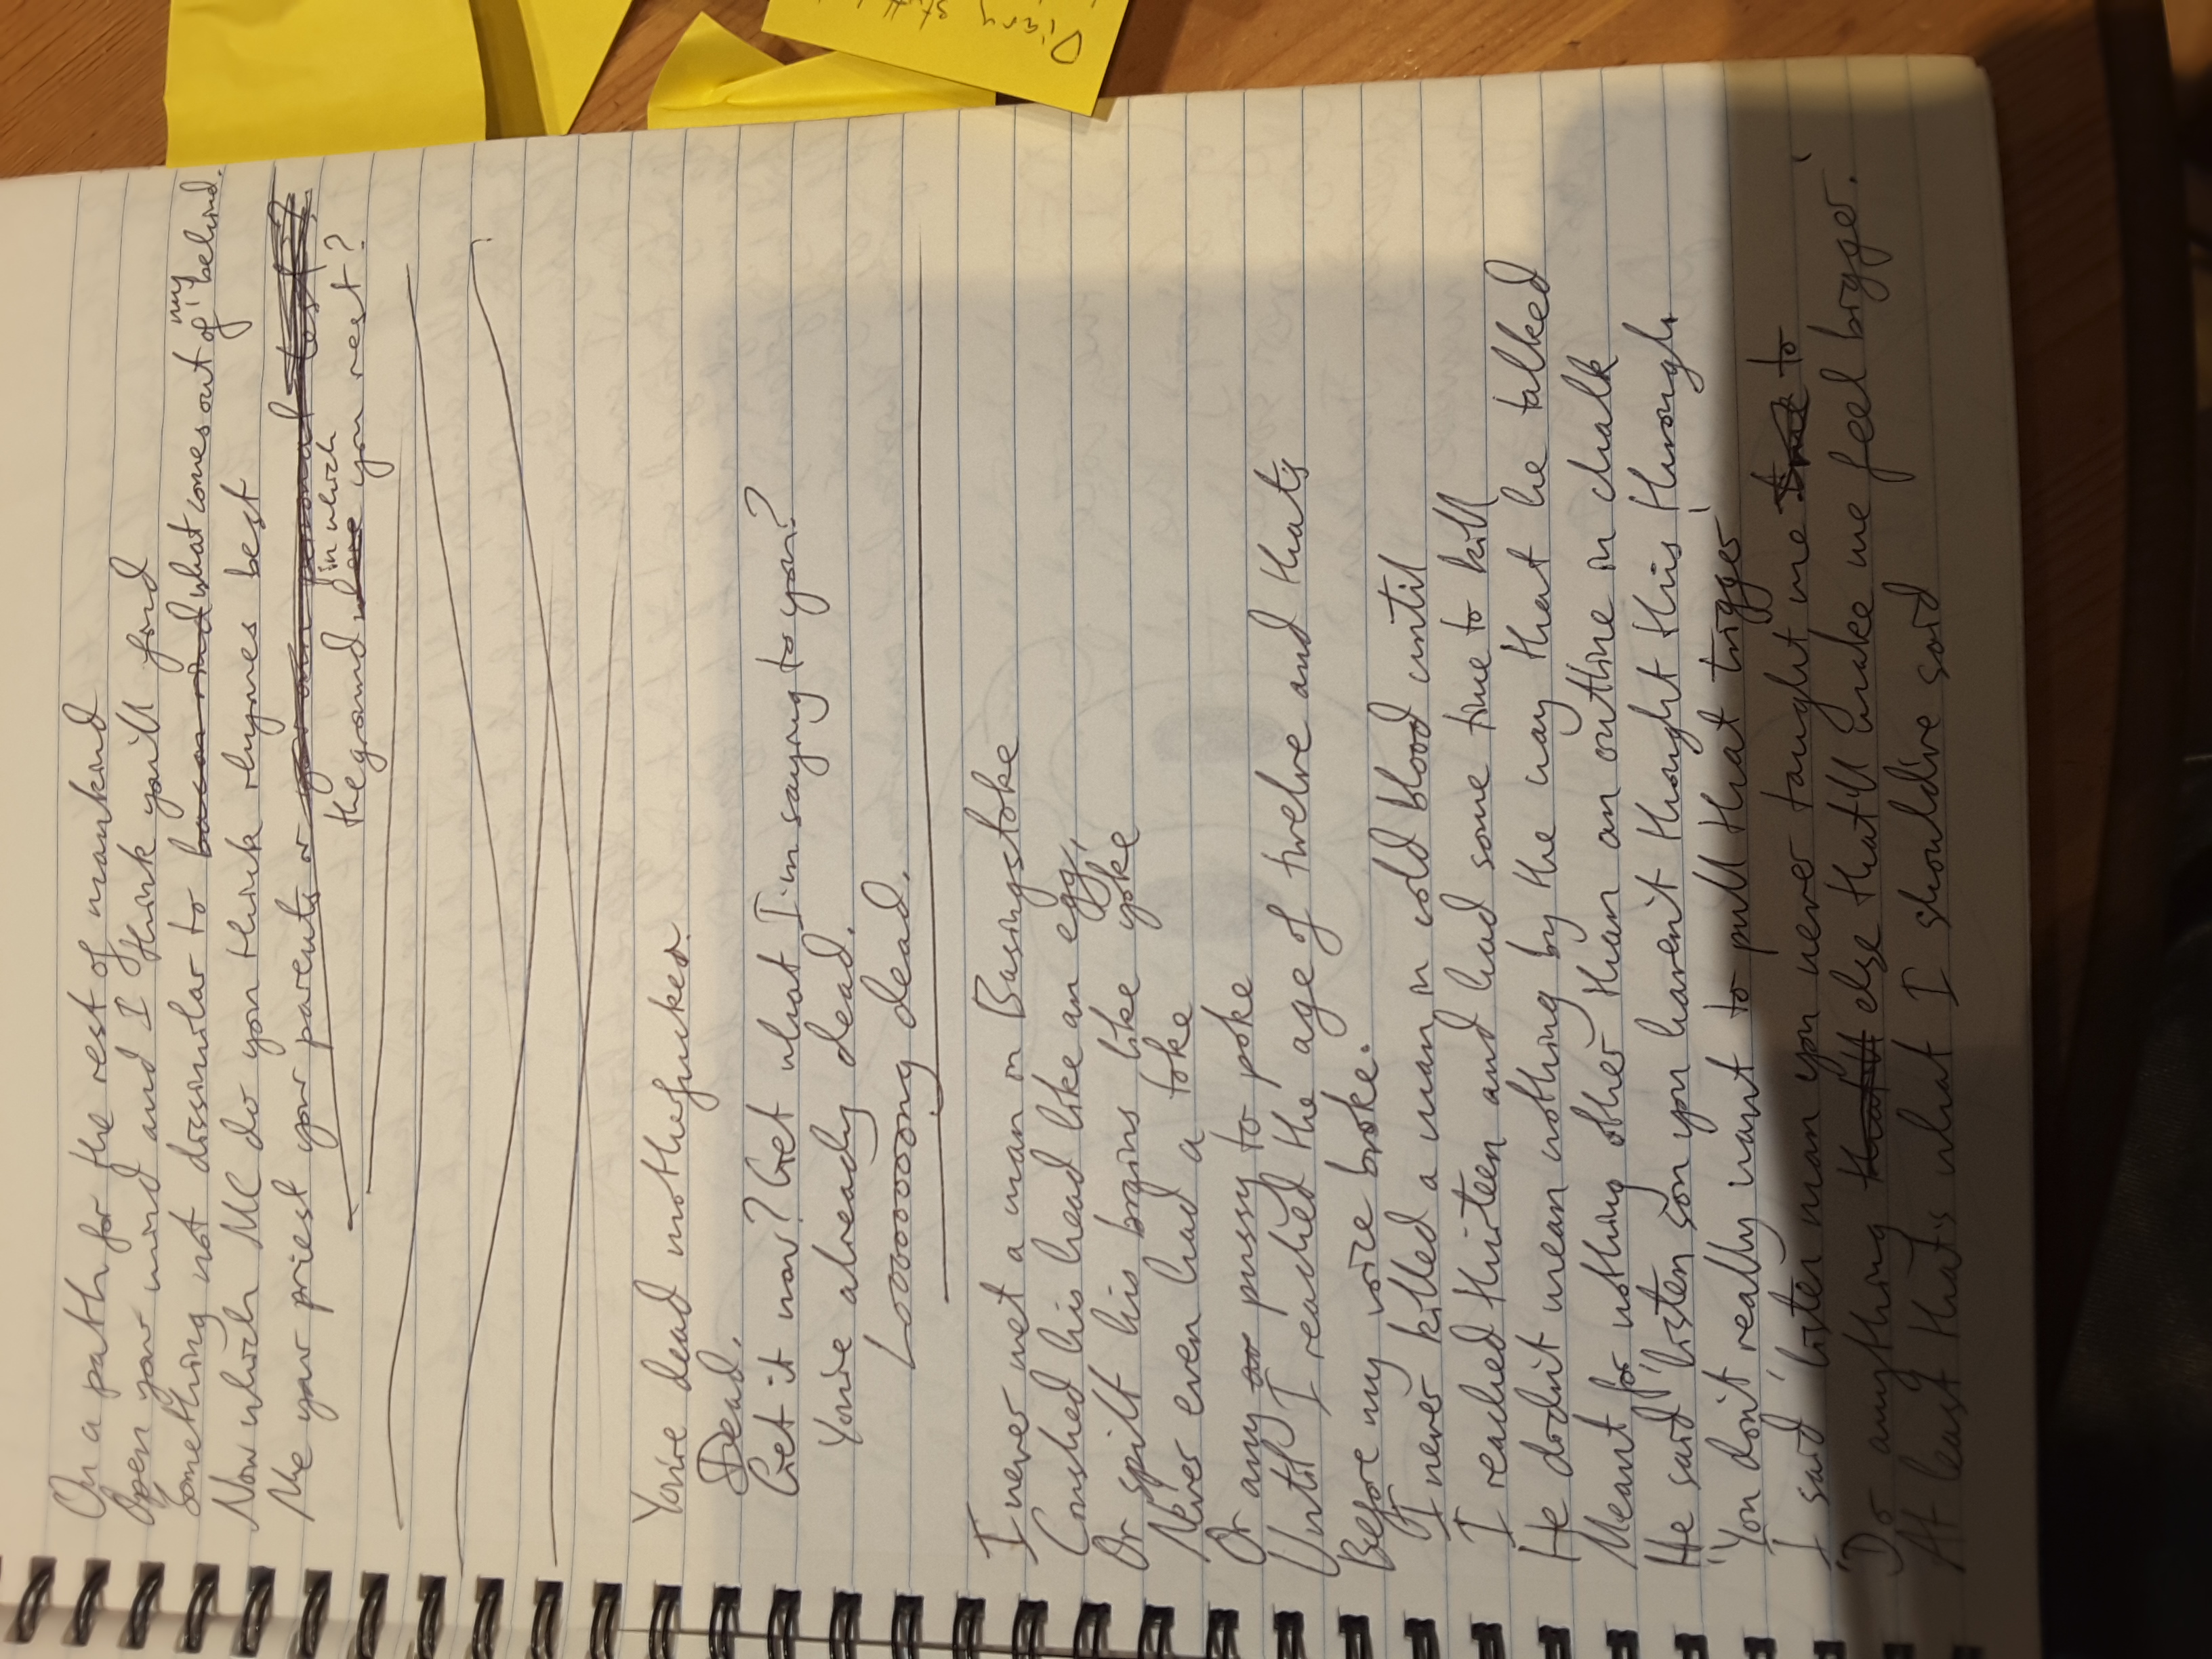 On a path for the rest of mankind
Open your mind and I think you'll find
Something not dissimilar to what comes out of my behind.
Now which MC do you think rhymes best
Me your priest your parents or
the ground in which you rest?
You're dead motherfucker.
Dead.
Get it now? Get what I'm saying to you?
You're already dead.
Looooooooong dead.
I never met a man in Basingstoke
Crushed his head like an egg,
Or spilt his brains like yoke
Never even had a toke
Or any pussy to poke
Until I reached the age of twelve and that's
Before my voice broke.
I never killed a man in cold blood until
I reached thirteen and had some time to kill
He didn't mean nothing by the way that he talked
Meant for nothing other than an outline in chalk
He said 'listen son you haven't thought this through
'You don't really want to pull that trigger'
I said 'listen man you never taught me to
'Do anything else that'll make me feel bigger.'
At least that's what I should've said
Diary